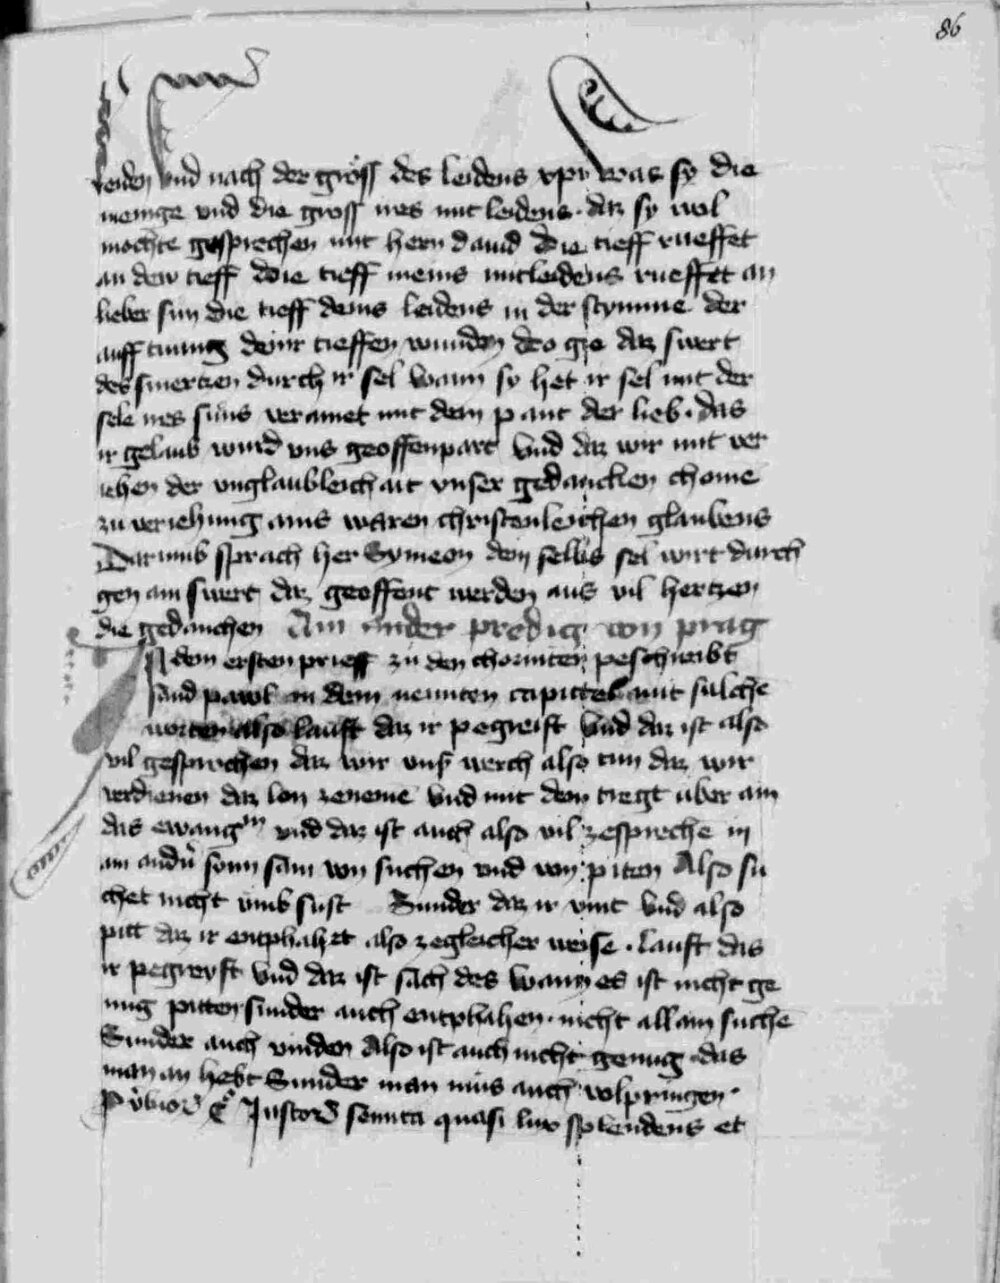 86
leiden vnd nach der gröss des leidens xpi was sy die
menige vnd die gross irs mitleidens · daz sy wol
mochte gesprechen mit hern dauid die tieff rueffet
an dew tieff die tieff meins mitleidens rueffet an
lieber sun die tieff deins leidens in der stymme der
auff tuung deinr tieffen wunden do gie daz swert
des smertzen durch ir sel wann sy het ir sel mit der
sele irs suns veraint mit dem pant der lieb · das
ir gelaub wurd vns geoffenpart vnd daz wir mit ver
iehen der vnglaubleichait vnser gedanchen chome
zu veriehung ains waren christenleichen glaubens
Darumb sprach her Symeon dein selbs sel wirt durch
gen ain swert daz geoffent werden aus vil hertzen
die gedanchen Ain ander predig von prag
In dem ersten prieff zu den chorinten peschreibt
sand pawl in dem neunten capittel mit sulche
worten also lauft daz ir pegreift vnd daz ist also
vil gesprochen daz wir vnser werch also tun daz wir
verdienen daz lon zeneme vnd mit dem tregt uber ain
das ewangm vnd daz ist auch also vil zespreche in
am andn sonn sam von suchen vnd von piten Also su
chet nicht vmb sust Sunder daz ir vint vnd also
pitt daz ir enphahet also zegleicher weise · lauft das
ir pegreyft vnd daz ist sach des wann es ist nicht ge
nug pitten sunder auch enphahen · nicht allain suche
Sunder auch vinden Also ist auch nicht genug · das
man an hebt Sunder man mus auch volpringen ·
Justor semita quasi lux splendens et